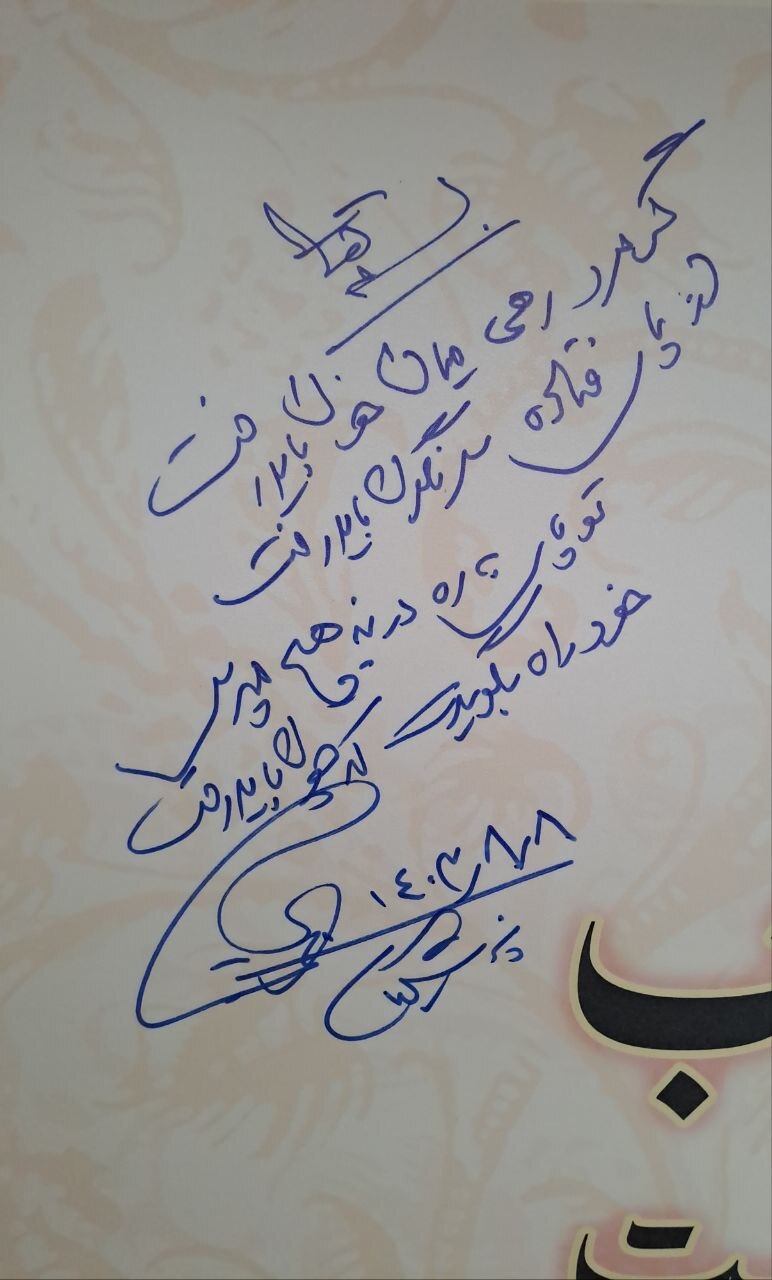 بسمه تعالی
گر مرد رهی میان خون باید رفت
از پای فتاده سرنگون باید رفت
تو پای به راه در نه و هیچ مپرس
خود راه بگویدت که چون باید رفت
۱۴۰۳/۸/۸
ب
ت